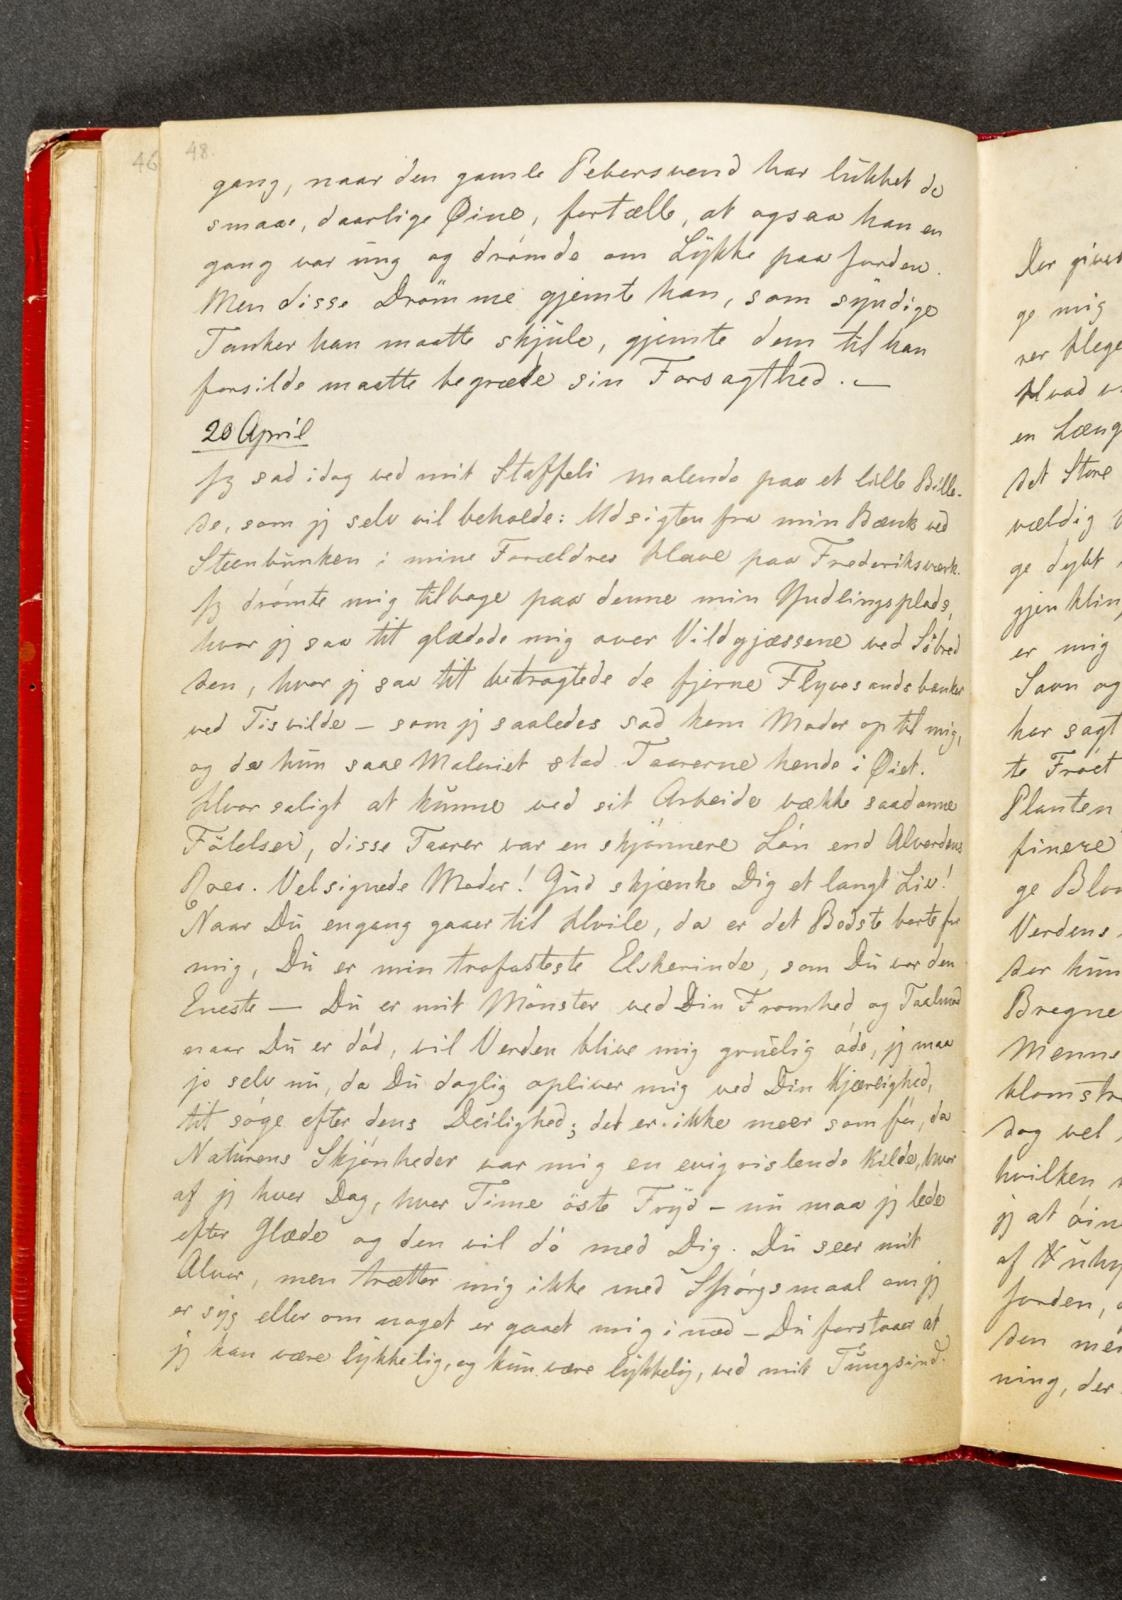 46 48.
gang, naar den gamle Pebersvend har lukket de
smaae, daarlige Øine, fortælle, at ogsaa han en
gang var ung og drømde om Lykke paa Jorden.
Men disse Drömme gjemte han, som syndige
Tanker han maatte skjule, gjemte dem til han
forsilde maatte begræde sin Forsagthed. —
20 April
Jeg sad idag ved mit Staffeli malende paa et lille Bille-
de, som jeg selv vil beholde: Udsigten fra min Bænk ved
Steenbunken i mine Forældres Have paa Frederiksværk.
Jeg drømte mig tilbage paa denne min Yndlingsplads,
hvor jeg saa tit glædede mig over Vildgjæssene ved Söbred
den, hvor jeg saa tit betragtede de fjerne Flyvesandsbanker
ved Tisvilde — som jeg saaledes sad kom Moder op til mig,
og da hun saae Maleriet stod Taarerne hende i Øiet.
Hvor saligt at kunne ved sit Arbeide vække saadanne
Fölelser, disse Taarer var en skjønnere Løn end Alverdens
Roes. Velsignede Moder! Gud skjænke Dig et langt Liv!
Naar Du engang gaaer til Hvile, da er det Bedste borte for
mig, Du er min trofasteste Elskerinde, som Du var den
Eneste — Du er mit Mönster ved Din Fromhed og Taalmod
naar Du er död, vil Verden blive mig gruelig øde, jeg maa
jo selv nu, da Du daglig opliver mig ved Din Kjærlighed,
tit søge efter dens Deilighed; det er ikke meer som før, da
Naturens Skjønheder var mig en evig rislende Kilde, hvor
af jeg hver Dag, hver Time öste Fryd — nu maa jeg lede
efter Glæde og den vil dö med Dig. Du seer mit
Alvor, men trætter mig ikke med Spørgsmaal om jeg
er syg eller om noget er gaaet mig imod — Du forstaaer at
jeg kan være lykkelig, og kun være lykkelig, ved mit Tungsind.
Der gives
ge mig
rer blege
Hvad
en Læng
det Store
vældig
ge dybt
gjenkling
er mig
Savn og
har sagt
te Fröet
Planten
finere
ge Blom
Verdens
der kun
Bregne
Menne
blomstr
dog vel
hvilken
jeg at öin
af
Jorden,
den
ning, der